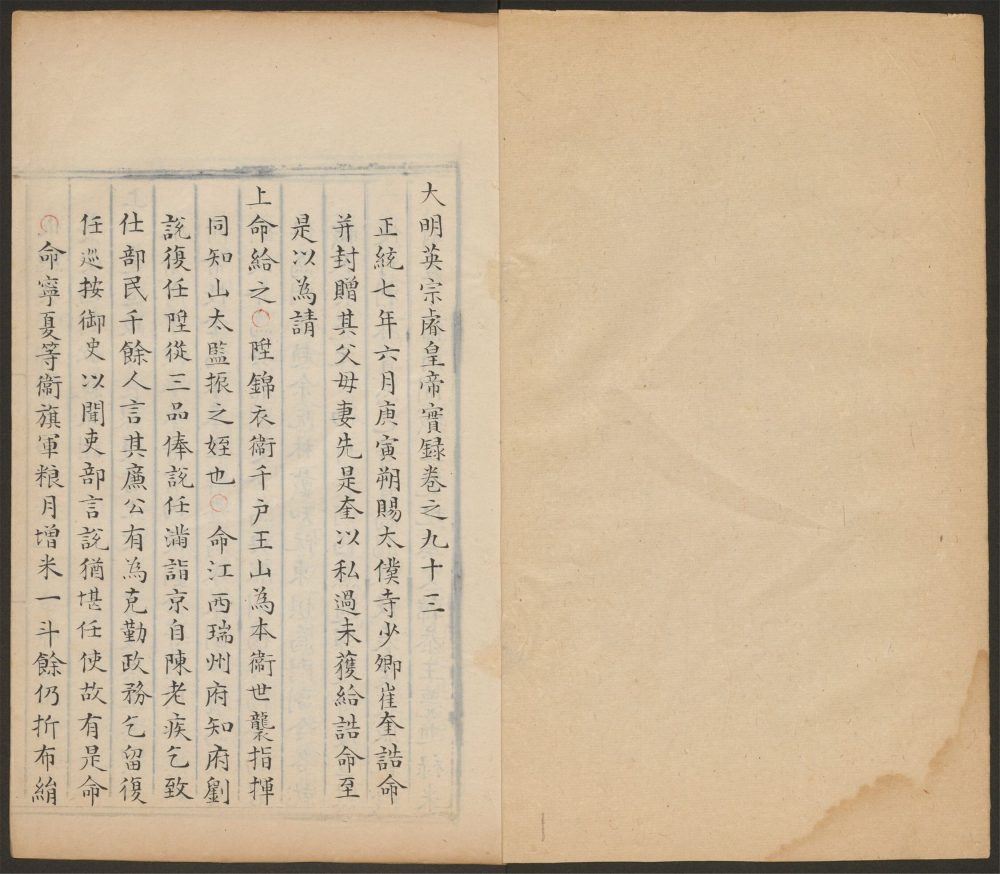 大明英宗睿皇帝實録卷之九十三
正統七年六月庚寅朔賜太僕寺少卿崔奎誥命
并封贈其父母妻先是奎以私過未獲給誥命至
是以為請
上命給之〇陞錦衣衞千户王山為本衞世襲指揮
同知山太監振之姪也〇命江西瑞州府知府劉
說復任陞從三品俸說任滿詣京自陳老疾乞致
仕部民千餘人言其廉公有為克勤政務乞留復
任巡按御史以聞吏部言說猶堪任使故有是命
〇命寧夏等衞旗軍粮月增米一斗餘仍折布絹